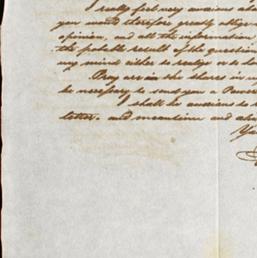 I really feel very anxious
you would therefore greatly
opinion, and all the information
the probable result of the question
my mind either to realize or to
Pray are in the shares in
be necessary to send you a
I shall be anxious to
letter. and meantime and